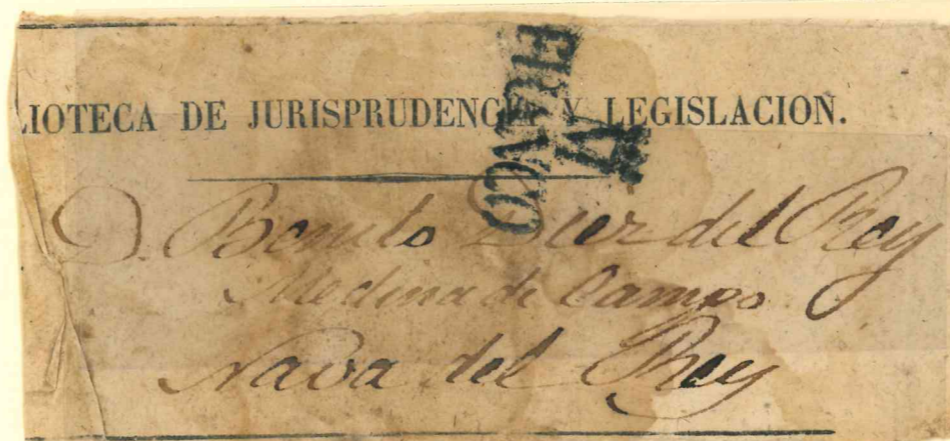 LIOTECA DE JURISPRUDENCIA Y LEGISLACION.
FRANCO
D. Benito Diez del Rey
Medina de Campo
Nava del Rey